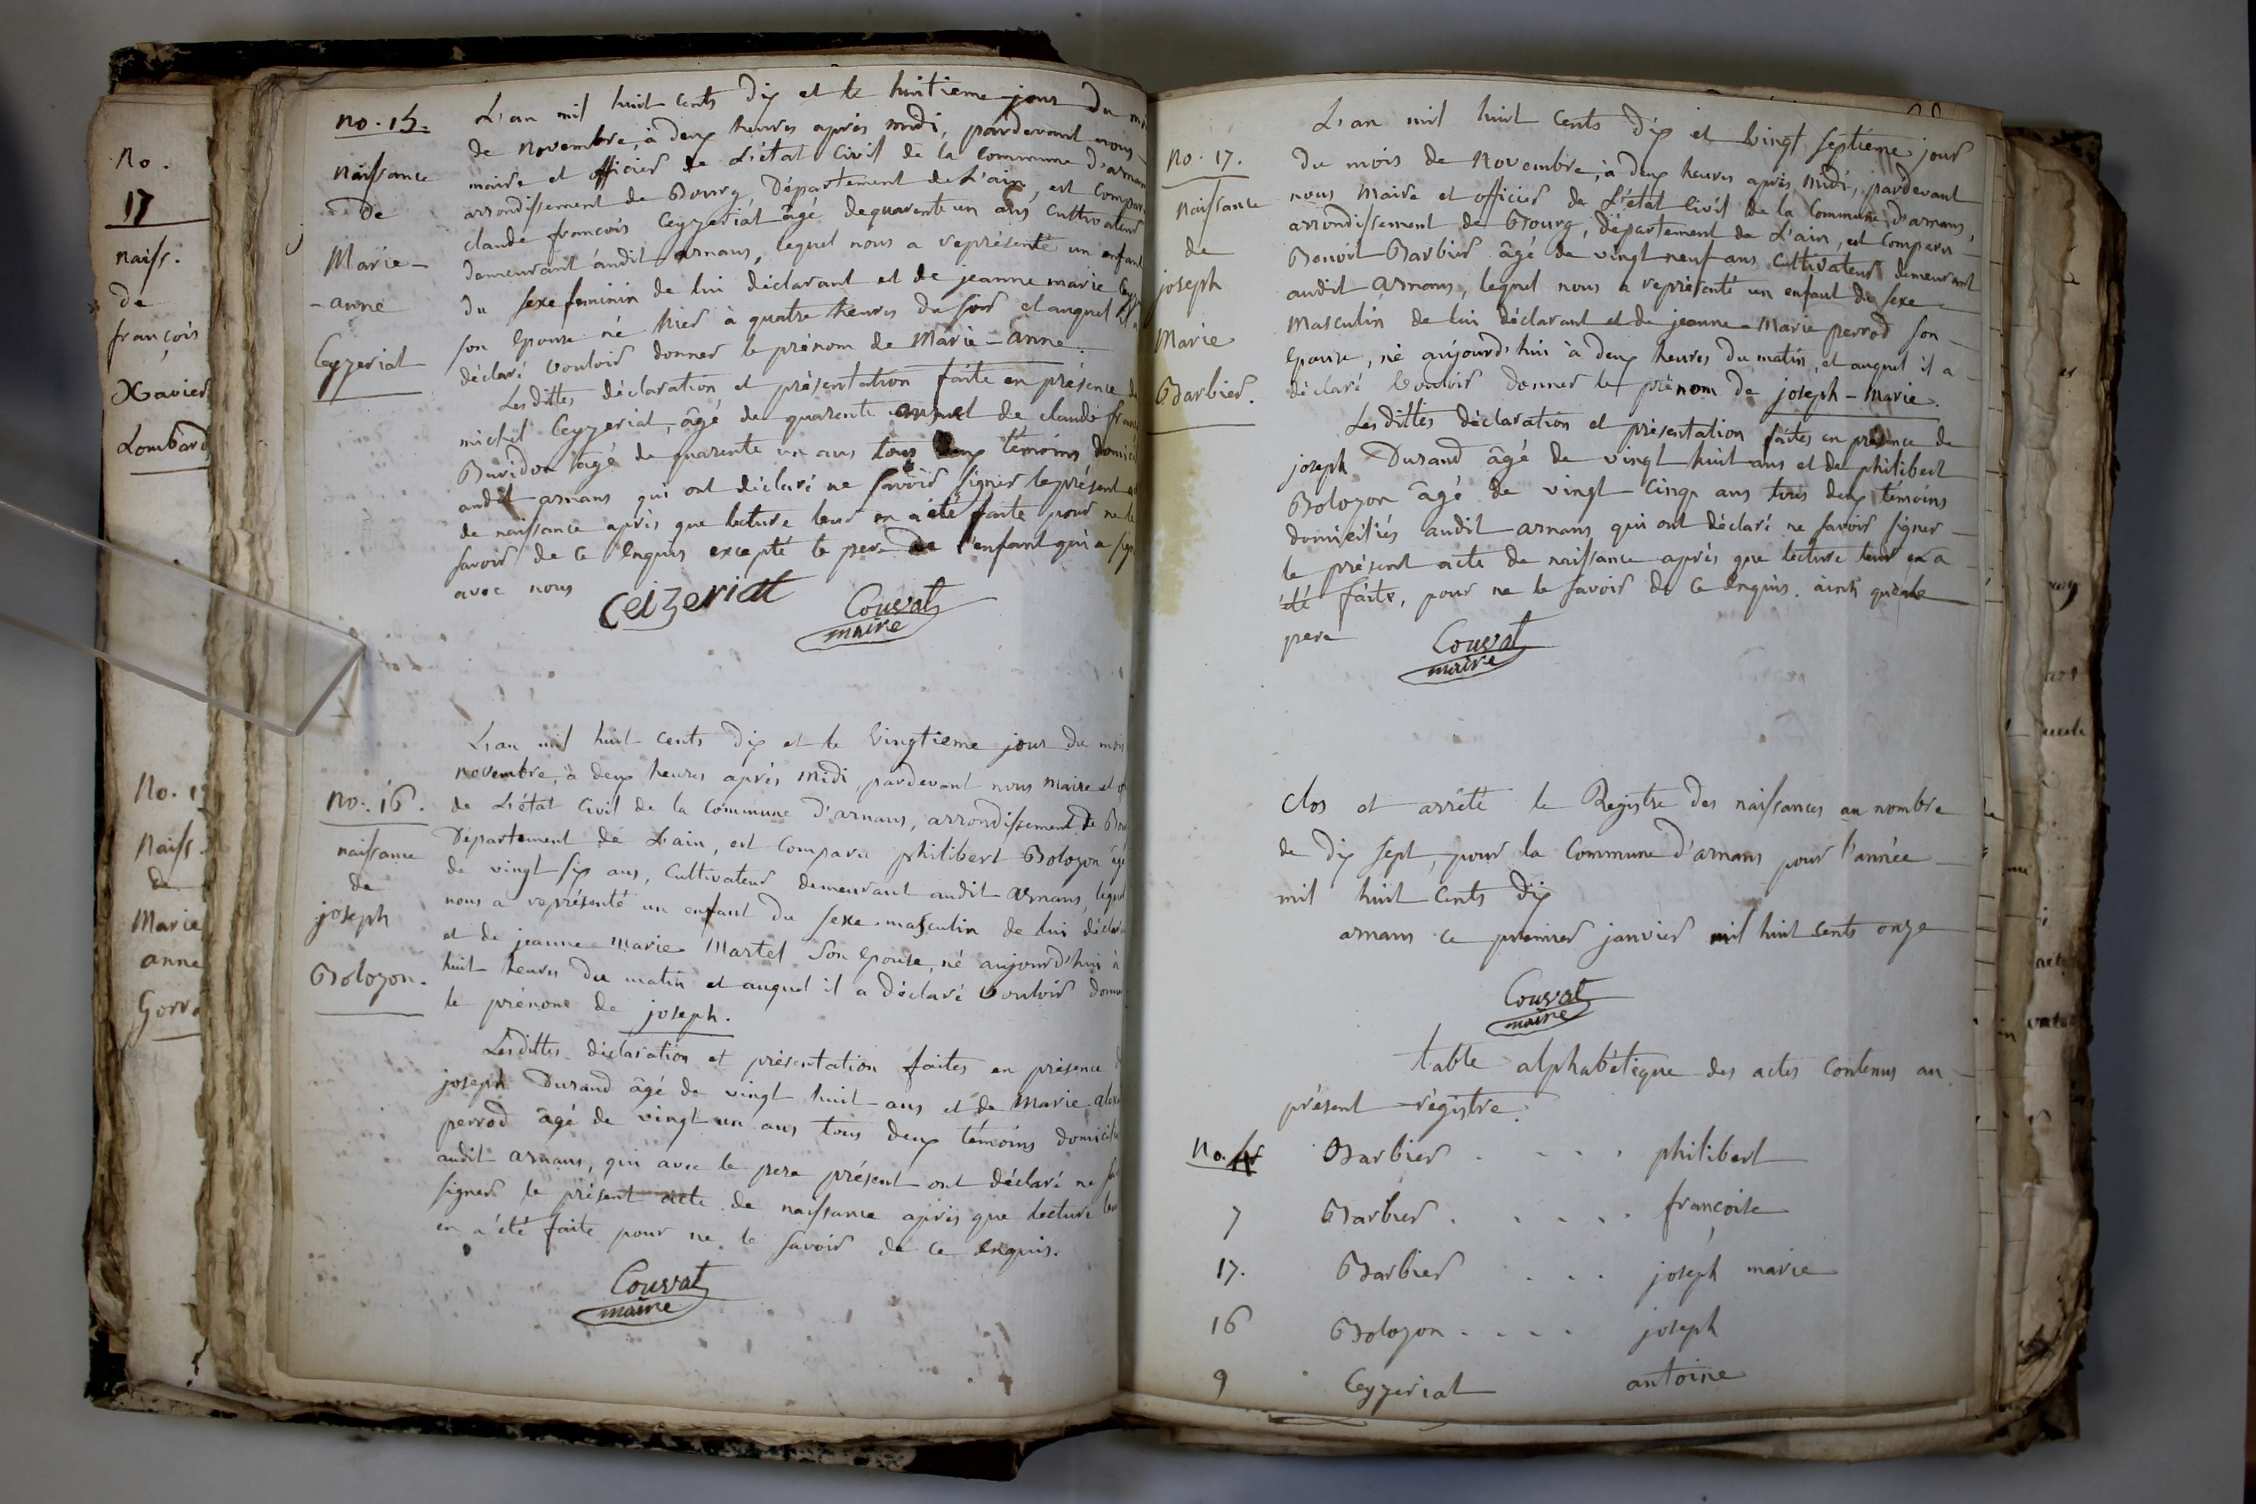 no.
17
naiss.
de
françois
Xavier
Lombard
no. 1
naiss.
de
Marie
anne
no. 15.
naissance
de
Marie-
-anne
Ceyzeriat
L'an mil huit cents dix et le huitieme jour du
de novembre, à deux heures après midi, pardevant nous
maire et officier de L'état Civil de la Commune d'arnans
arrondissement de Bourg, Département de L'ain, est Comparu
claude françois Ceyzeriat âgé de quarente un ans Cultivateur
demeurant audit arnans, lequel nous a représenté un enfant
du sexe feminin de lui déclarant et de jeanne marie
son Epouse né hier à quatre heures du soir et auquel il a
déclaré vouloir donner le prénom de Marie-anne.
Lesdittes déclaration et présentation faite en présence de
michel Ceyzeriat, âgé de quarente et de claude
Buridon âgé de quarente un ans tous deux témoins
audit arnans qui ont déclaré ne savoir signer le présent
de naissance après que lecture leur en a été faite pour ne le
savoir de ce Enquis excepté le pere de l'enfant qui a
avec nous
Ceizeriat
Couvat
maire
no. 16.
naissance
de
joseph
Bolozon.
L'an mil huit cents dix et le vingtieme jour du mois
novembre, à deux heures après midi pardevant nous maire et
de L'état Civil de la Commune d'arnans, arrondissement de
Département de L'ain, est Comparu philibert Bolozon âgé
de vingt six ans, Cultivateur demeurant audit arnans, lequel
nous a représenté un enfant du sexe masculin de lui
et de jeanne Marie Martel son Epouse, né aujourd'hui à
huit heures du matin et auquel il a déclaré vouloir
le prénome de joseph.
Lesdittes déclaration et présentation faites en présence
joseph Durand âgé de vingt huit ans et de Marie
perrod âgé de vingt un ans tous deux témoins
audit arnans, qui avec le pere présent ont déclaré ne
signer le présent acte de naissance après que lecture
en a été faite pour ne le savoir de ce Enquis.
Couvat
maire
no. 17.
naissance
de
joseph
Marie
Barbier.
L'an mil huit cents dix et vingt septieme jour
du mois de novembre, à deux heures après midi, pardevant
nous Maire et officier de L'état Civil de la Commune d'arnans,
arrondissement de Bourg, département de L'ain, est Comparu
Benoit Barbier âgé de vingt neuf ans Cultivateur demeurant
audit arnans, lequel nous a représenté un enfant du sexe
Masculin de lui déclarant et de jeanne-Marie perrod son
Epouse, né aujourd'hui à deux heures du matin, et auquel il a
déclaré vouloir donner le prénom de joseph-Marie.
Lesdittes déclaration et présentation faites en présence de
joseph Durand âgé de vingt huit ans et de philibert
Bolozon âgé de vingt cinq ans tous deux témoins
domiciliés audit arnans, qui ont déclaré ne savoir signer
le présent acte de naissance après que lecture leur en a
été faite, pour ne le savoir de ce Enquis. ainsi que le
pere
Couvat
maire
Clos et arrêté le Registre des naissances au nombre
de dix sept, pour la Commune d'arnans pour l'année
mil huit cents dix
arnans ce premier janvier mil huit cents onze
Couvat
maire
table alphabétique des actes contenus au
présent régistre.
no. Barbier . . . . philibert
7 Barbier . . . . . françoise
17. Barbier . . . joseph marie
16 Bolozon . . . . joseph
9 Ceyzeriat antoine